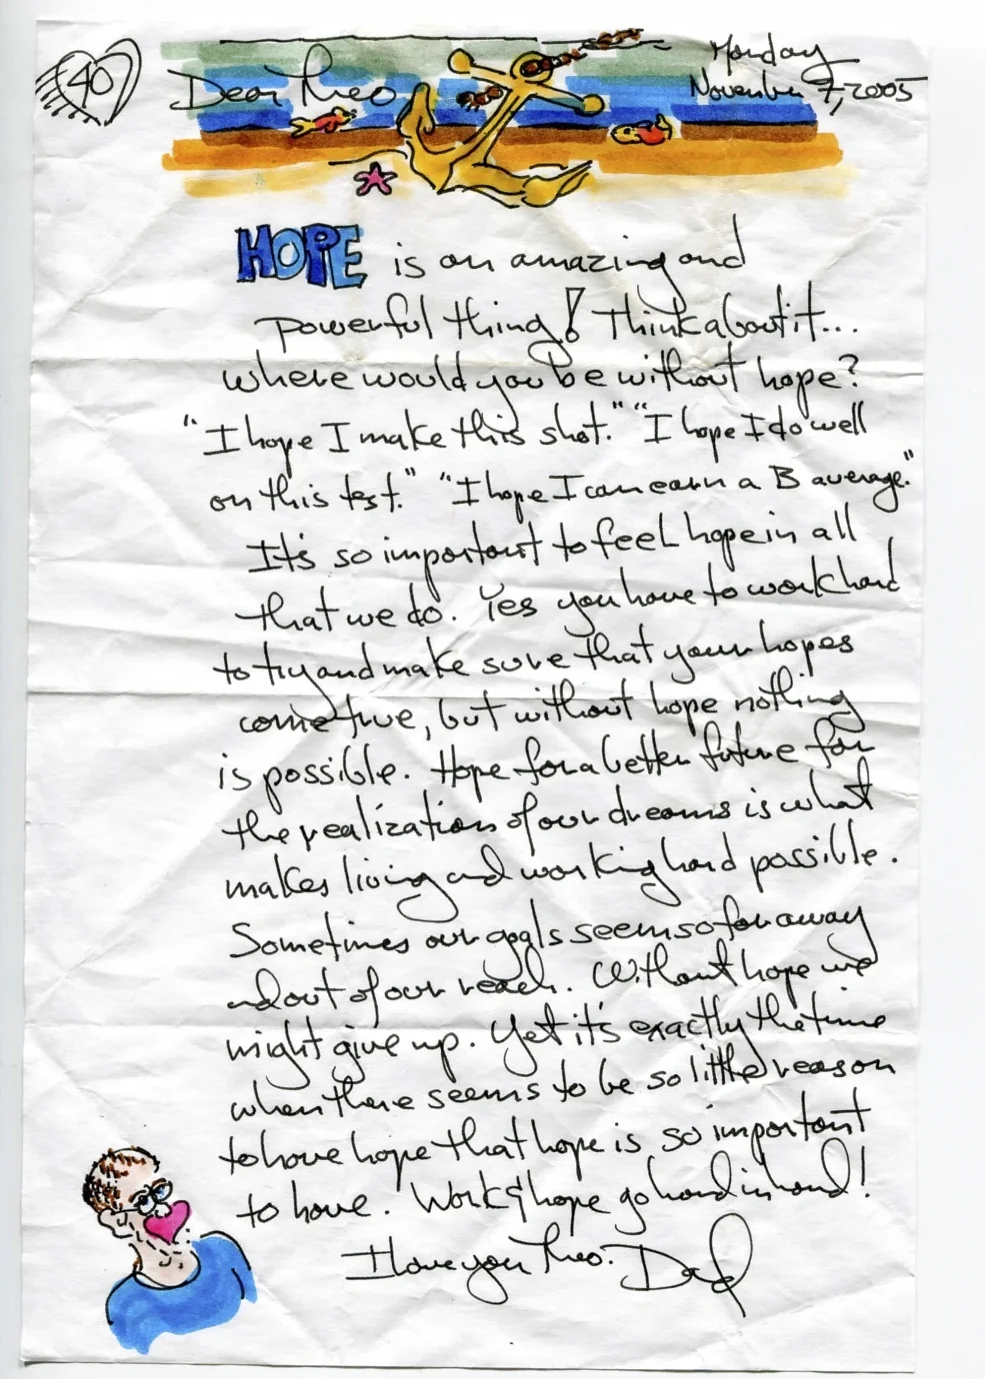 40
Dear Theo
Monday
November 7, 2005
HOPE is an amazing and
powerful thing! Think about it...
where would you be without hope?
"I hope I make this shot." "I hope I do well
on this test." "I hope I can earn a B average."
It's so important to feel hope in all
that we do. Yes you have to work hard
to try and make sure that your hopes
come true, but without hope nothing
is possible. Hope for a better future for
the realization of our dreams is what
makes living and working hard possible.
Sometimes our goals seem so far away
and out of our reach. Without hope we
might give up. Yet it's exactly the time
when there seems to be so little reason
to have hope that hope is so important
to have. Work & hope go hand in hand!
I love you Theo. Dad